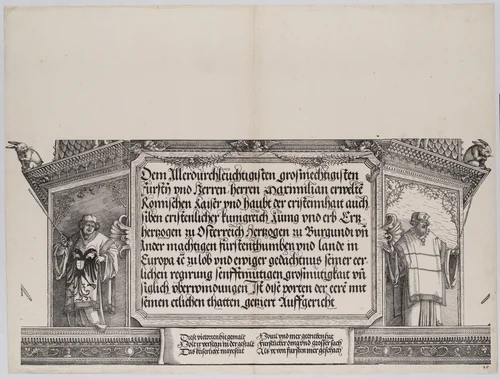 Dem Allerdurchleuchtigisten großmechtigisten
Fürsten vnd Herren herren Maximilian erwelte
Romischen Kaiser vnd haubt der cristenhait auch
siben cristenlicher kunigreich kunig vnd erb Ertz
hertzogen zu Osterreich Hertzogen zu Burgundi vn̄
Ander mächtigen fürstenthumben vnd lande in
Europa ꝛc zu lob vnd ewiger gedächtnus seiner eer
lichen regirung senfftmütigen großmutigkait vn̄
siglich überwindungen Ist dise porten der eere mit
seinen etlichen thatten getziert Auffgericht
in der gestalt
Das
Noui vnd mer
Fürstlicher vnd grosser sach
Als ye von fürsten mer geschach